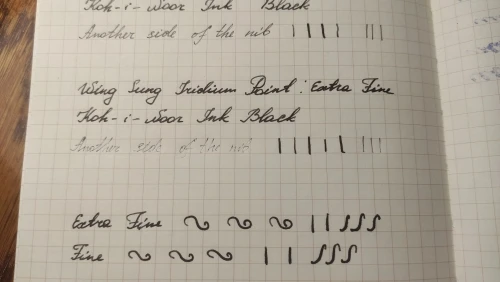 Koh-i-Noor Ink Black
Another side of the nib
Wing Sung Iridium Point: Extra Fine
Koh-i-Noor Ink Black
Another side of the nib
Extra Fine
Fine